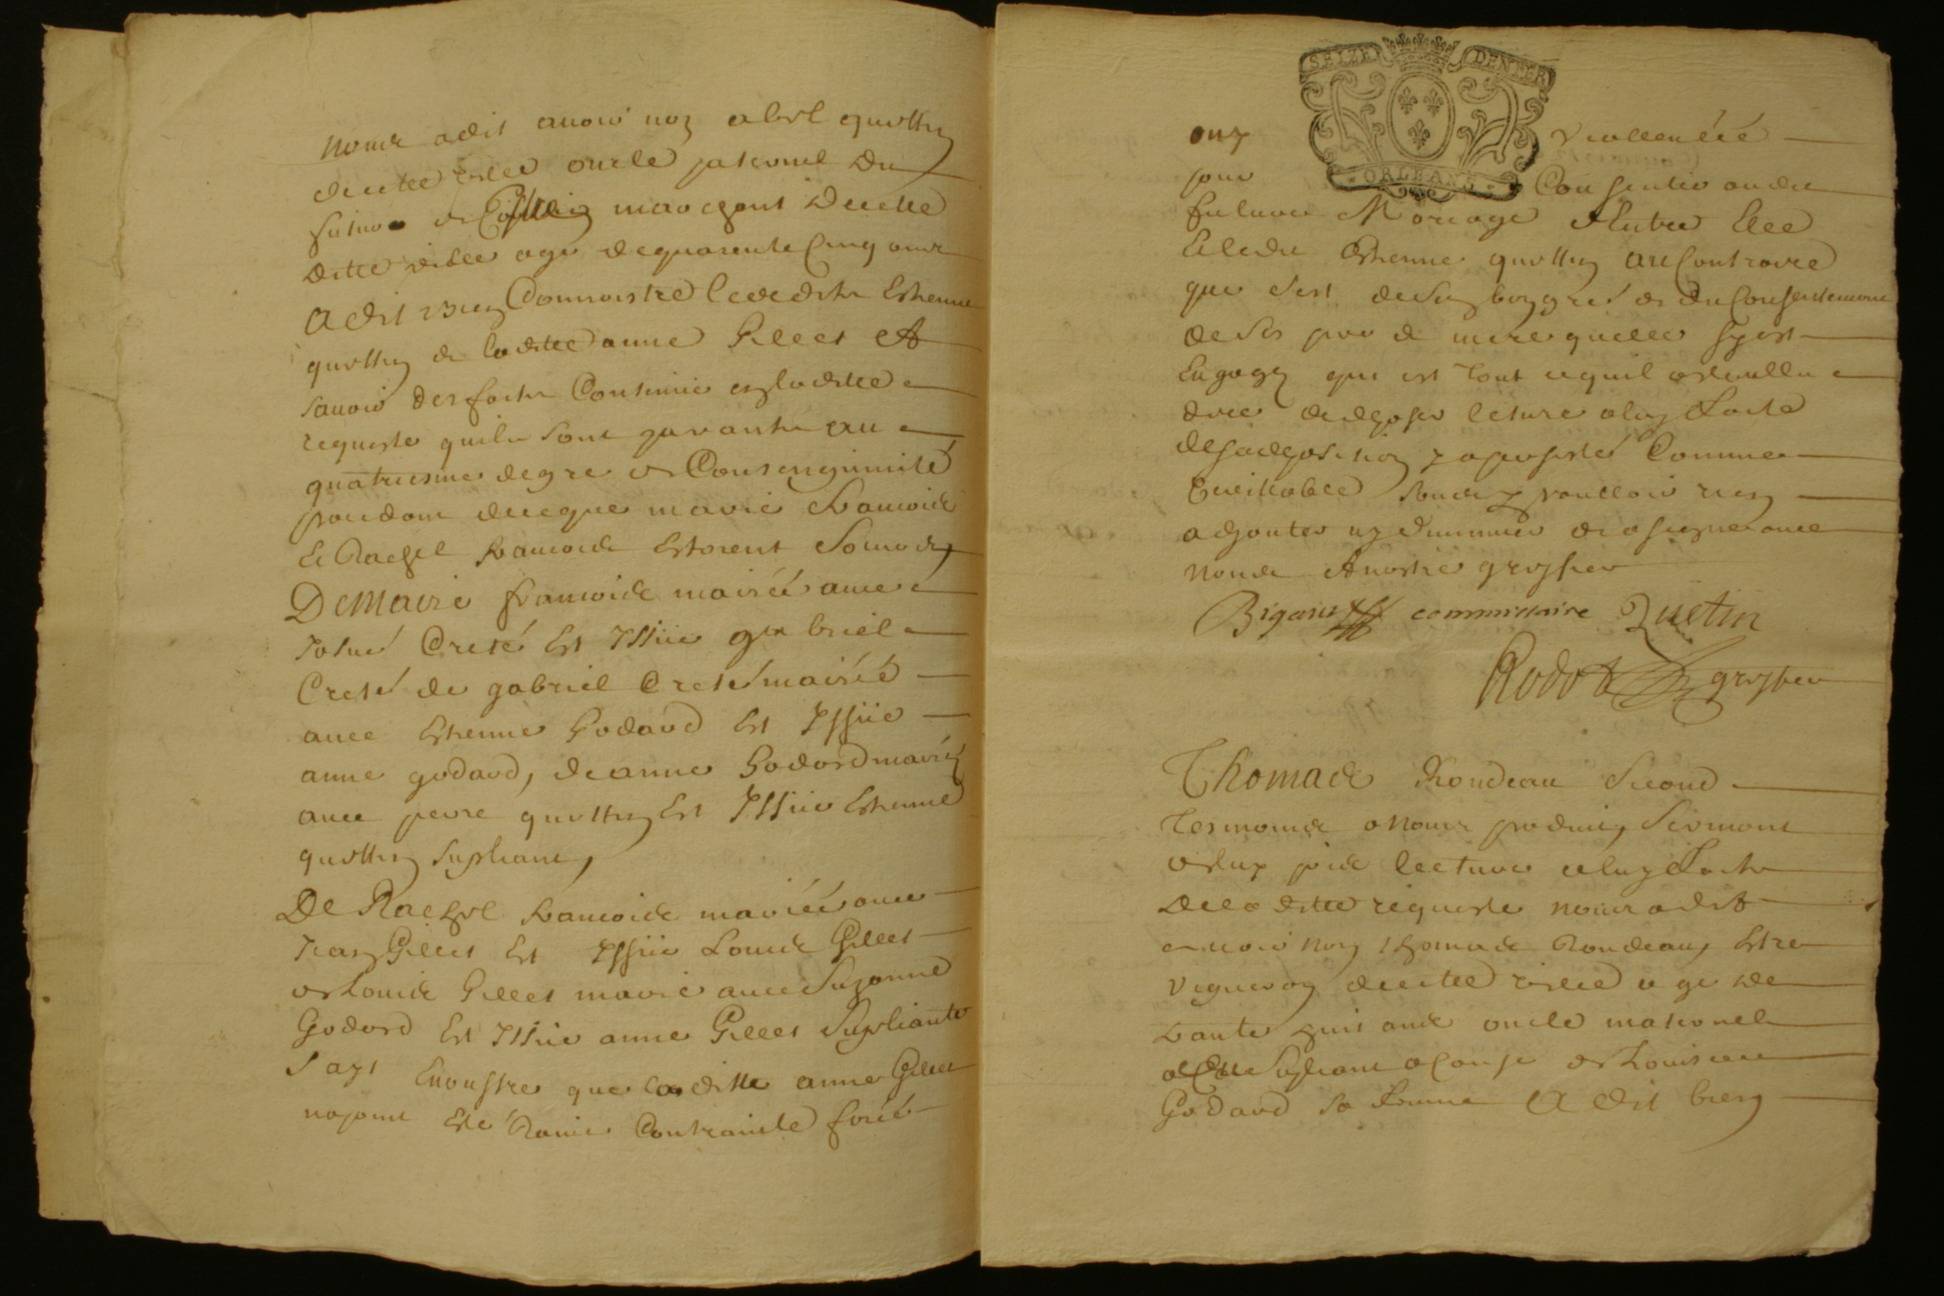 nous a dit avoir nom abel quettin
de cette ville oncle paternel du
marchant de cette
ditte ville agé de quarente cinq ans
a dit bien connoistre lesdits Estienne
quettin et laditte anne Gilles et
scavoir des faits contenus en laditte
requeste quils sont parants au
quatriesme degre de consenginnité
pandant ceque marie francoise
et Rachel francoise estoient soeurs,
De Marie francoise mairée avec
Creté est issue gabriel
Creté de gabriel Creté mairée
avec Estienne Godard est issue
anne godard, de anne Godard mariée
avec pierre quettin est issue Estienne
quettin supliant,
De Rachel francoise mariée avec
Jean Gilles est issue Louis Gilles
de Louis Gilles marié avec Suzanne
Godard est issue anne Gilles supliante
scayt en oustre que laditte anne Gilles
na point esté contrainte forcé
SEIZE DENIER
ORLEANS
ony viollentée
pour consentir audit
futur Mariage dentre elle
et ledit Estienne quettin au controire
que cest de son bon gré et du consentement
de ses pere et mere quelle sy est
engagé qui est tout ce quil a
dire et deposer lecture a luy faite
de sa deposition y a persisté comme
veritable sans y voulloir rien
adjouter ny diminuer et a signé avec
nous et nostre greffier
commissaire Quetin
greffier
Thomas Rondeau second
tesmoing a nous produit, serment
de luy pris lecture a luy faite
de laditte requeste nous a dit
avoir nom thomas Rondeau, estre
vigneron de cette ville agé de
trante huit ans oncle maternel
supliant a cause de Louise
Godard sa femme a dit bien